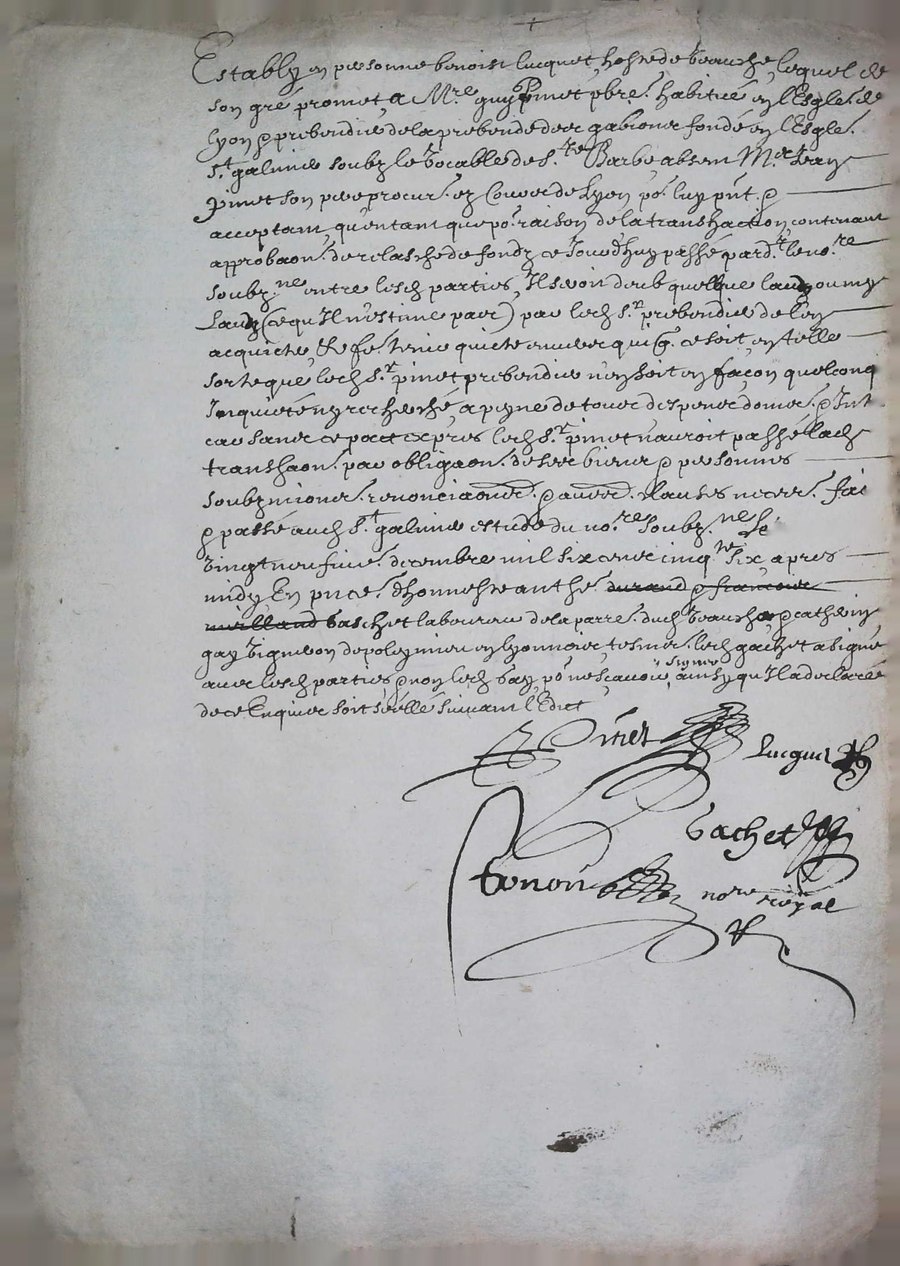 Estably en personne benoist lucquet hoste de beauche lequel de
son gré promet a M.re guy pinet pbre. habitué en l'Esglé. de
lyon & prebendié de la prebende des gabions fondé en l'Esgle.
S.t galmier soubz le vocable de S.te Barbe absent M.e
pinet son pere procur.r ez Cours de Lyon po.r luy pnt. &
acceptant qu'entant que po.r raison de la transhaction contenant
approbaon. de relasche de fondz ce Jourdhuy passé pard.t le no.re
soubz.né entre lesd parties Il seroit deub quelque laudz ou my
Laudz (ce qu'Il n'estime pas) par led S.r prebendié de l'en
acquicter, & fe. tenir quicte envers qui q. ce soit en telle
sorte que led S.r pinet prebendié n'en soit en façon quelconq
Inquiété ny recherché, a peyne de tous despens domes. & Int
car sans ce pact expres led S.r pinet n'auroit passé lad
transhaon. par obligaon. de ses biens & personnes
soubzmions. renonciaons. & aues. clauses necess. fai
& passé aud S.t galmier estude du no.re soubz.né Le
vingt neufie. decembre mil six cens cinq.te six apres
midy En pnce. d'honneste anthe. durand & francois
meilland bachet laboureur de la parre. dud beauche & catherin
gay vigneron de poleymieu en lyonnois tesmes. led gachet a signé
avec lesd parties & non led Gay po.r ne scavoir signer ainsy qu'Il a declaré
de ce Enquis soit scellé suivant l'Edict
Pinet
Lucquet
bachet
no.re royal